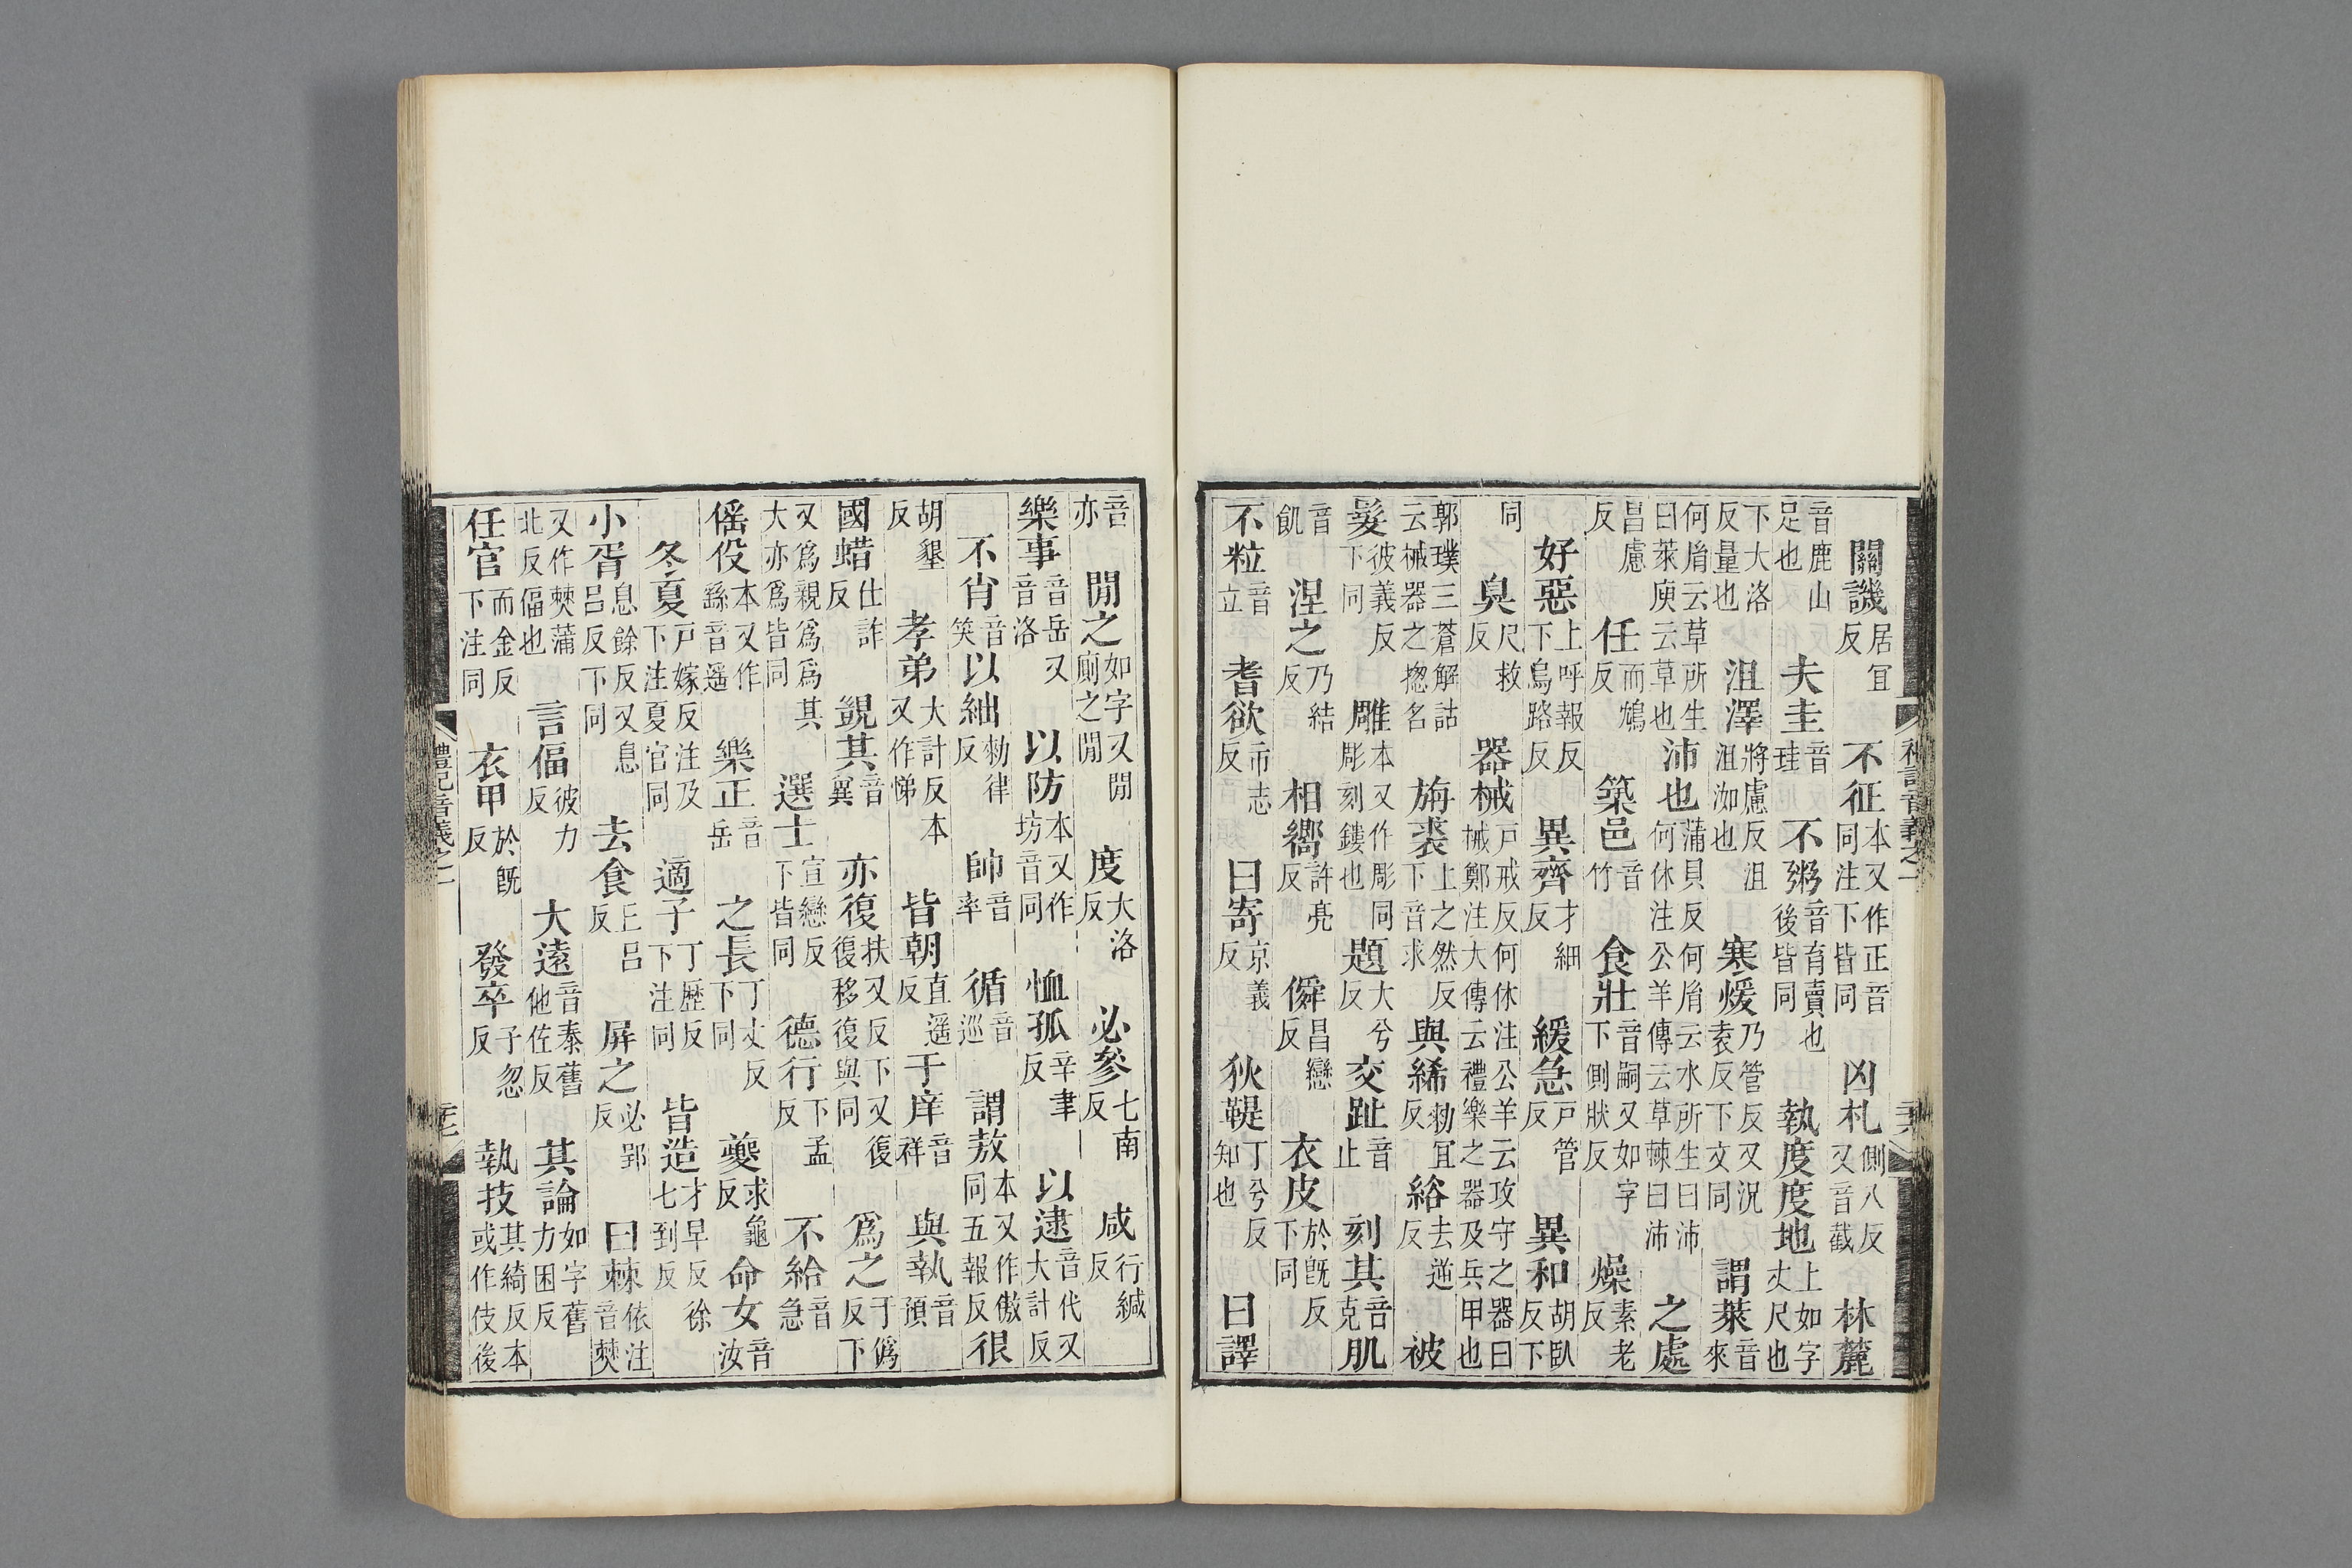 禮記音義之一
關譏居宜反不征本又作正音同注下皆同凶札側八反又音截林麓
音鹿山足也夫圭音珪不粥音育賣也後皆同執度度地上如字丈尺也
下大洛反量也沮澤將慮反沮沮洳也寒煖乃管反又況袁反下文同謂萊音來
何胤云草所生曰萊庾云草也沛也蒲貝反何胤云水所生曰沛何休注公羊傳云草棘曰沛之處
昌慮反任而鴆反築邑音竹食壯音嗣又如字下側狀反燥素老反
好惡上呼報反下烏路反異齊才細反緩急戶管反異和胡臥反下
同臭尺救反器械戶戒反何休注公羊云攻守之器曰械鄭注大傳云禮樂之器及兵甲也
郭璞三蒼解詁云械器之揔名旃裘上之然反下音求與絺勑宜反綌去逆反被
髮彼義反下同雕本又作彫同彫刻鏤也題大兮反交趾音止刻其音克肌
音飢涅之乃結反相嚮許亮反僢昌戀反衣皮於旣反下同
不粒音立耆欲市志反曰寄京義反狄鞮丁兮反知也曰譯
音亦閒之如字又閒廁之閒度大洛反必參七南反咸行緘反
樂事音岳又音洛以防本又作坊音同恤孤辛聿反以逮音代又大計反
不肖音笑以絀勑律反帥音率循音巡謂敖本又作傲同五報反很
胡墾反孝弟大計反本又作悌皆朝直遥反于庠音祥與執音預
國蜡仕詐反覬其音冀亦復扶又反下又復復移復與同爲之于僞反下
又爲親爲爲其大亦爲皆同選士宣戀反下皆同德行下孟反不給音急
傜役本又作繇音遥樂正音岳之長丁丈反下同夔求龜反命女音汝
冬夏戶嫁反注及下注夏官同適子丁歷反下注同皆造才早反徐七到反
小胥息餘反又息呂反下同去食丘呂反屏之必郢反曰棘依注音僰
又作僰蒲北反偪也言偪彼力反大遠音泰舊他佐反其論如字舊力困反
任官而金反下注同衣甲於旣反發卒子忽反執技其綺反本或作伎後
禮記音義之一